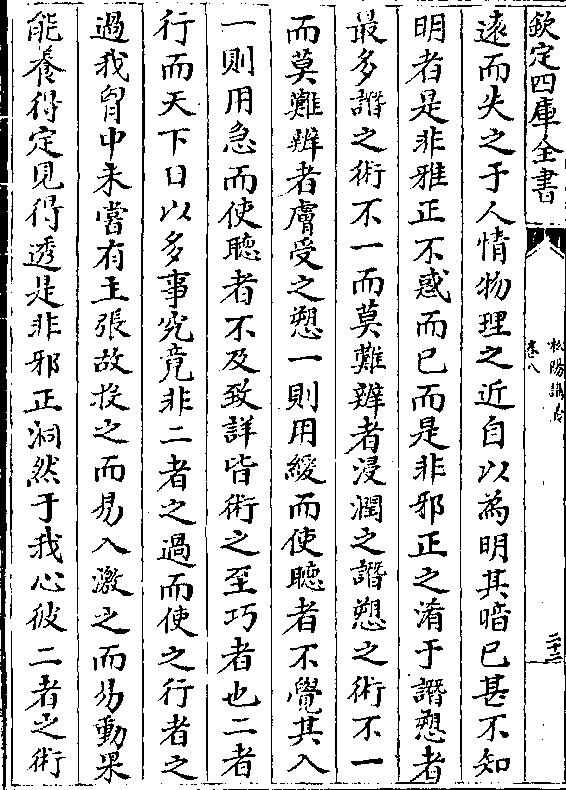 欽定四庫全書
松陽講義
卷八
二十二
遠而失之于人情物理之近自以為明其暗已甚不知
明者是非雅正不惑而已而是非邪正之淆于譖愬者
最多譖之術不一而莫難辨者浸潤之譖愬之術不一
而莫難辨者膚受之愬一則用緩而使聽者不覺其入
一則用急而使聽者不及致詳皆術之至巧者也二者
行而天下日以多事究竟非二者之過而使之行者之
過我胷中未嘗有主張故投之而易入激之而易動果
能養得定見得透是非邪正洞然于我心彼二者之術